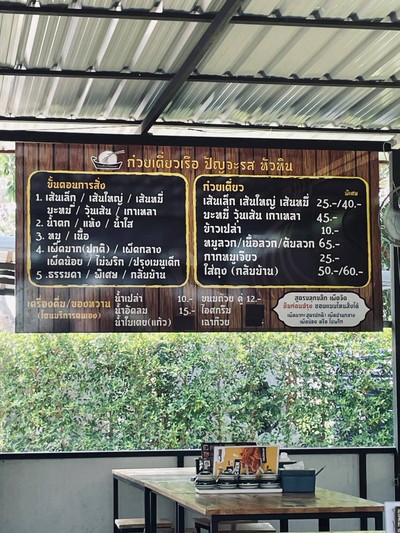 ก๋วยเตี๋ยวเรือ ปัญจะรส หัวหิน
ขั้นตอนการสั่ง
1. เส้นเล็ก / เส้นใหญ่ / เส้นหมี่
บะหมี่ / วุ้นเส้น / เกาเหลา
2. น้ำตก / แห้ง / น้ำใส
3. หมู / เนื้อ
4. เผ็ดมาก(ปกติ) / เผ็ดกลาง
เผ็ดน้อย / ไม่พริก / ปรุงเมนูเด็ก
5. ธรรมดา / พิเศษ / กลับบ้าน
ก๋วยเตี๋ยว
พิเศษ
เส้นเล็ก เส้นใหญ่ เส้นหมี่ 25.-/40.-
บะหมี่ วุ้นเส้น เกาเหลา 45.-
ข้าวเปล่า 10.-
หมูลวก/เนื้อลวก/ตับลวก 65.-
กากหมูเจียว 25.-
ใส่ถุง (กลับบ้าน) 50.-/60.-
เครื่องดื่ม/ของหวาน
(โซนบริการตนเอง)
น้ำเปล่า 10.-
น้ำอัดลม 15.-
น้ำใบเตย(แก้ว)
ขนมถ้วย คู่ 12.-
ไอศกรีม
เฉาก๊วย